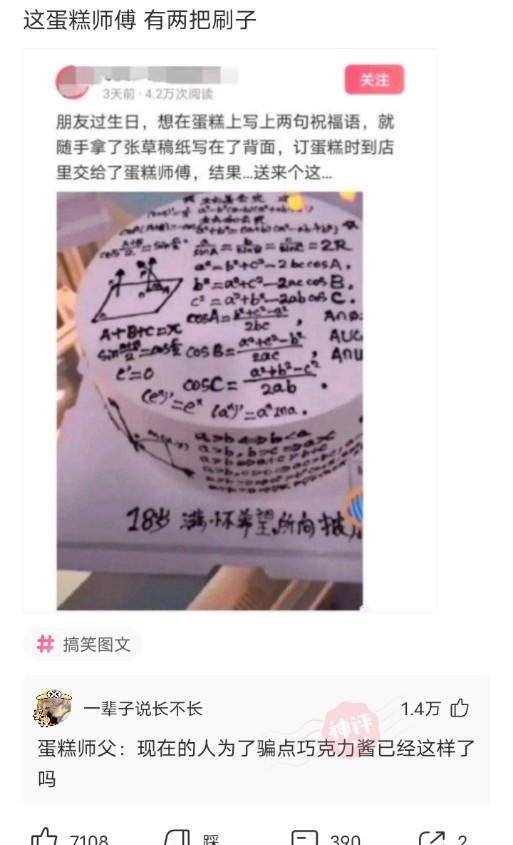 这蛋糕师傅 有两把刷子
关注
3天前 · 4.2万次阅读
朋友过生日，想在蛋糕上写上两句祝福语，就
随手拿了张草稿纸写在了背面，订蛋糕时到店
里交给了蛋糕师傅，结果...送来个这...
= 2R
a²=b²+c²-2bccosA,
b²=a²+c²-2accosB,
c²=a²+b²-2abcosC.
cosA=b²+c²-a²/2bc,
A+B+C=π
cosB=a²+c²-b²/2ac,
C'=0
cosC=a²+b²-c²/2ab.
(eˣ)'=eˣ (aˣ)'=aˣlna.
18岁 满怀希望,所向披
# 搞笑图文
一辈子说长不长
1.4万
神评
蛋糕师父：现在的人为了骗点巧克力酱已经这样了
吗
7108 踩 390 2